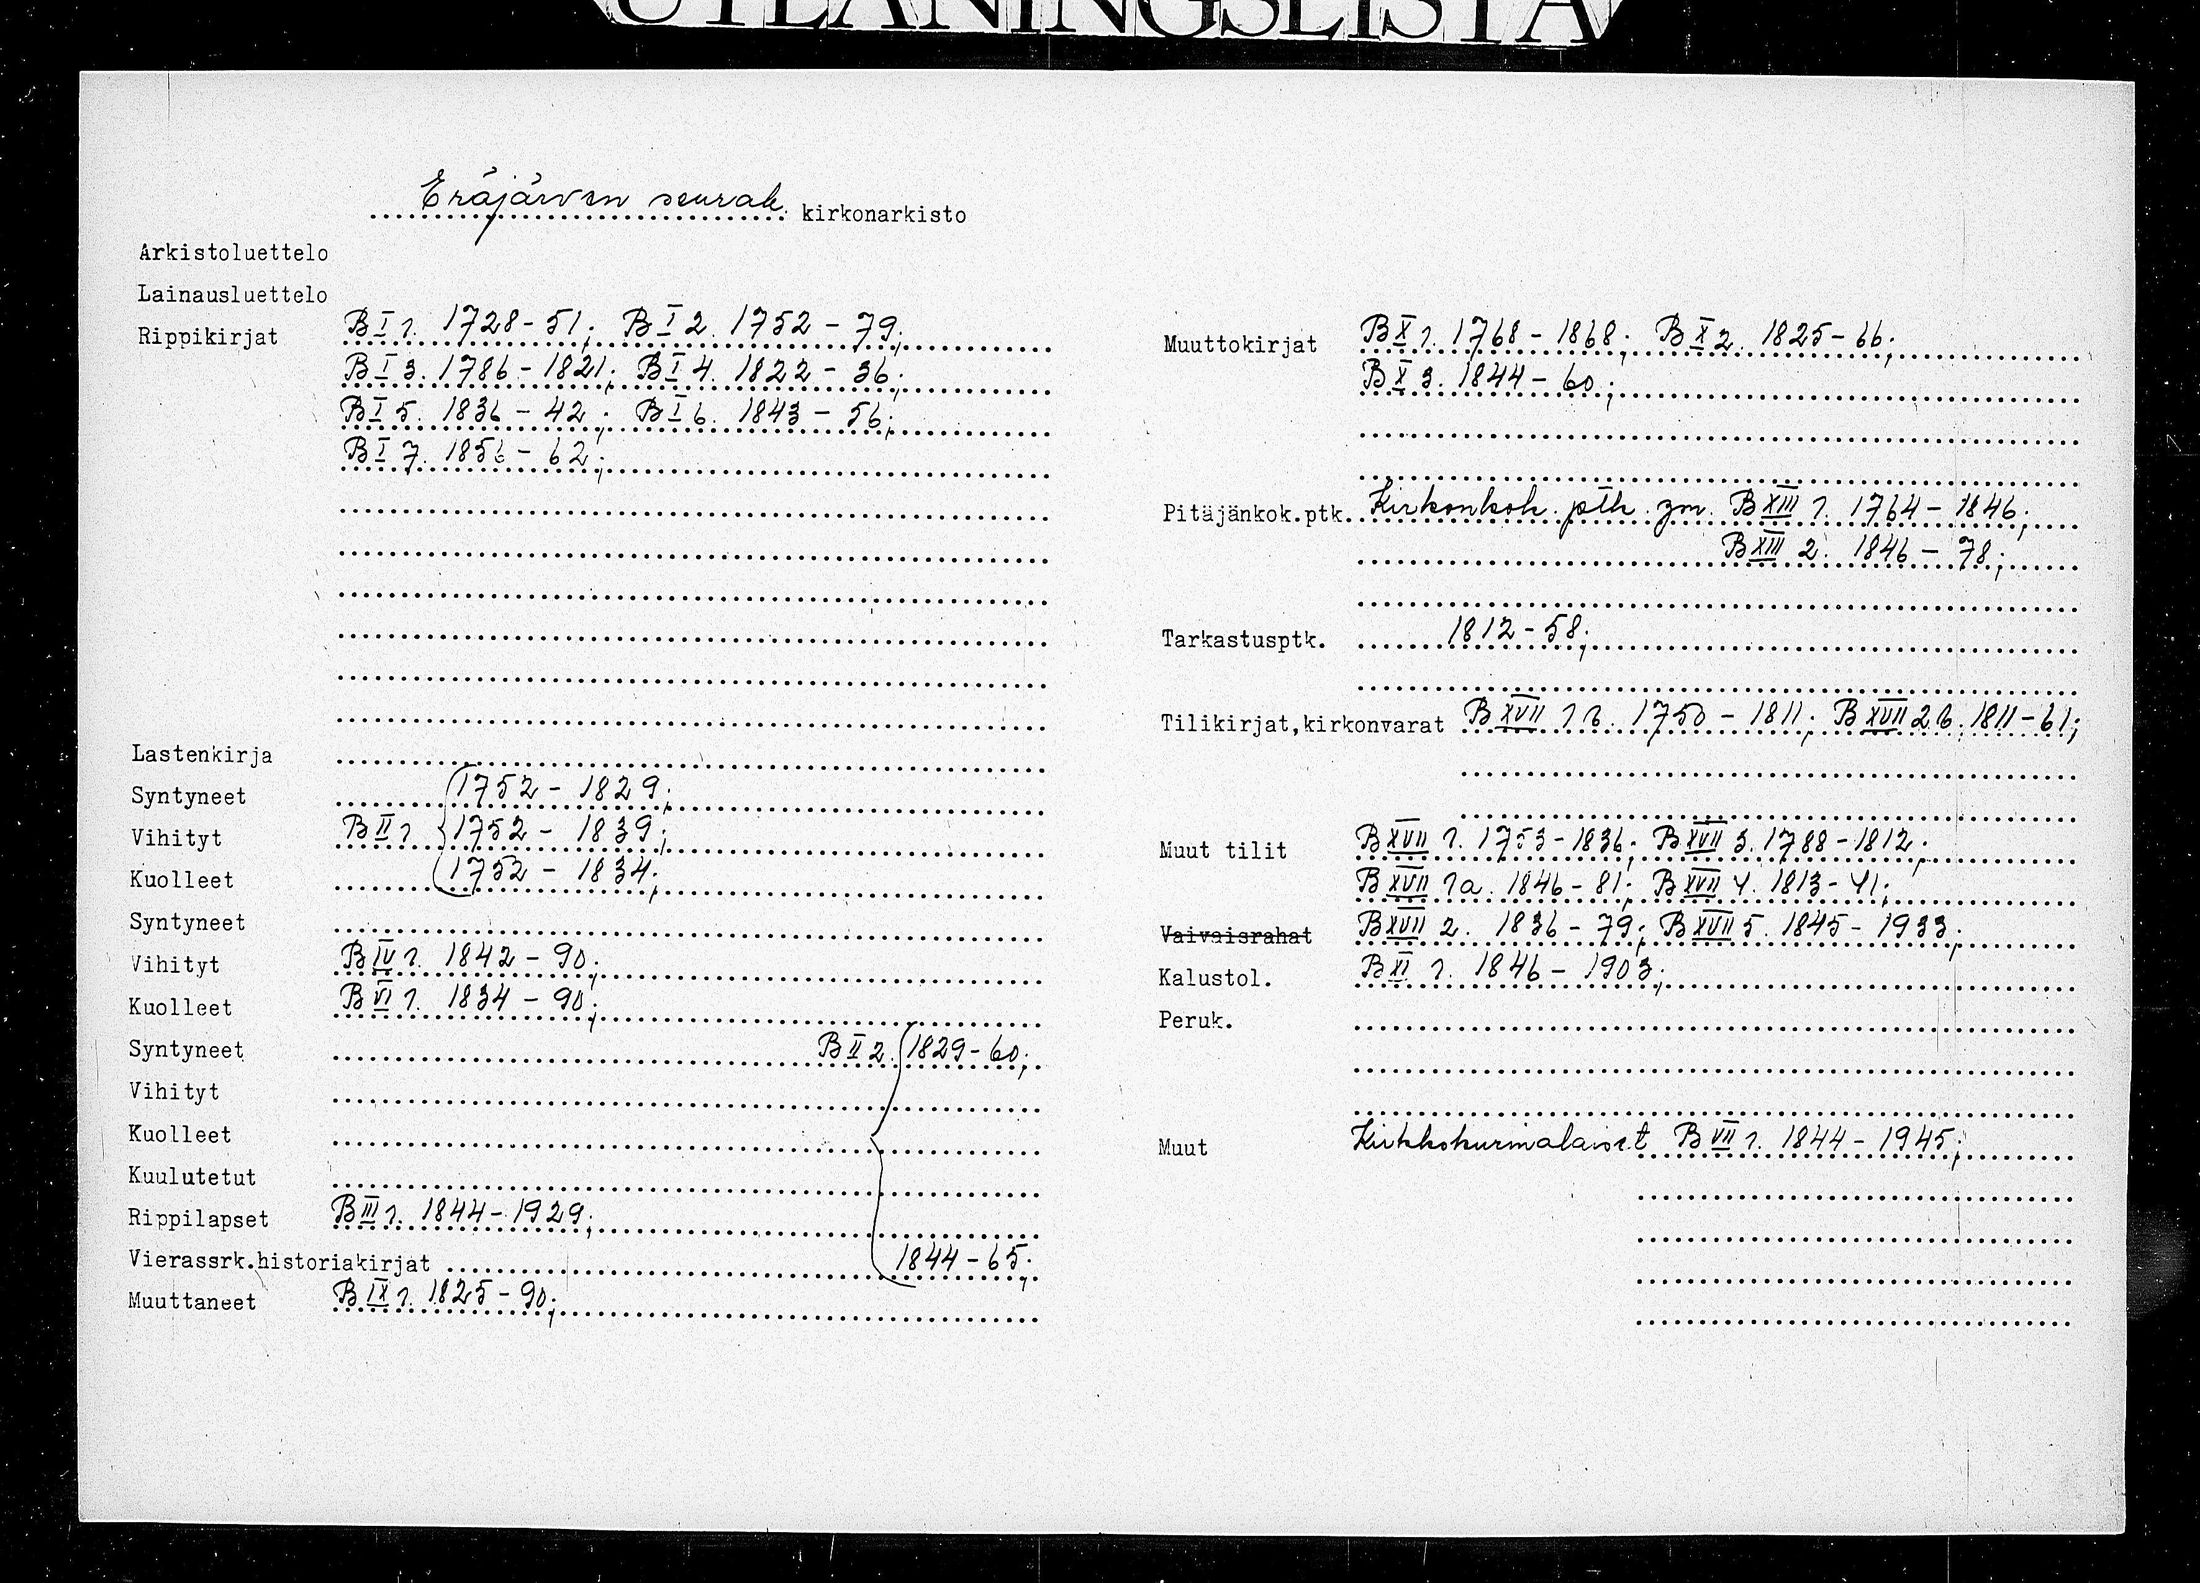 UTLÅNINGSLISTA
Eräjärven seurak. kirkonarkisto
Arkistoluettelo
Lainausluettelo
Rippikirjat B I 1. 1728-51; B I 2. 1752-79;
B I 3. 1786-1821; B I 4. 1822-36;
B I 5. 1836-42; B I 6. 1843-56;
B I 7. 1856-62;
Lastenkirja
Syntyneet 1752-1829;
Vihityt B II 1 1752-1839;
Kuolleet 1752-1834;
Syntyneet
Vihityt B IV 1. 1842-90;
Kuolleet B VI 1. 1834-90;
Syntyneet B II 2. 1829-60;
Vihityt
Kuolleet
Kuulutetut
Rippilapset B III 1. 1844-1929;
Vierassrk.historiakirjat 1844-65;
Muuttaneet B IX 1. 1825-90;
Muuttokirjat B X 1. 1768-1868; B X 2. 1825-66;
B X 3. 1844-60;
Pitäjänkok.ptk. Kirkonkok. ptk. ym. B XIII 1. 1764-1846;
B XIII 2. 1846-78;
Tarkastusptk. 1812-58;
Tilikirjat,kirkonvarat B XVII 1 b. 1750-1811; B XVII 2 b. 1811-61;
Muut tilit B XVII 1. 1753-1836; B XVII 3. 1788-1812;
B XVII 1a. 1846-81; B XVII 4. 1813-41;
Vaivaisrahat B XVII 2. 1836-79; B XVII 5. 1845-1933;
Kalustol. B XI 1. 1846-1903;
Peruk.
Muut Kirkkokurinalaiset B VII 1. 1844-1945;